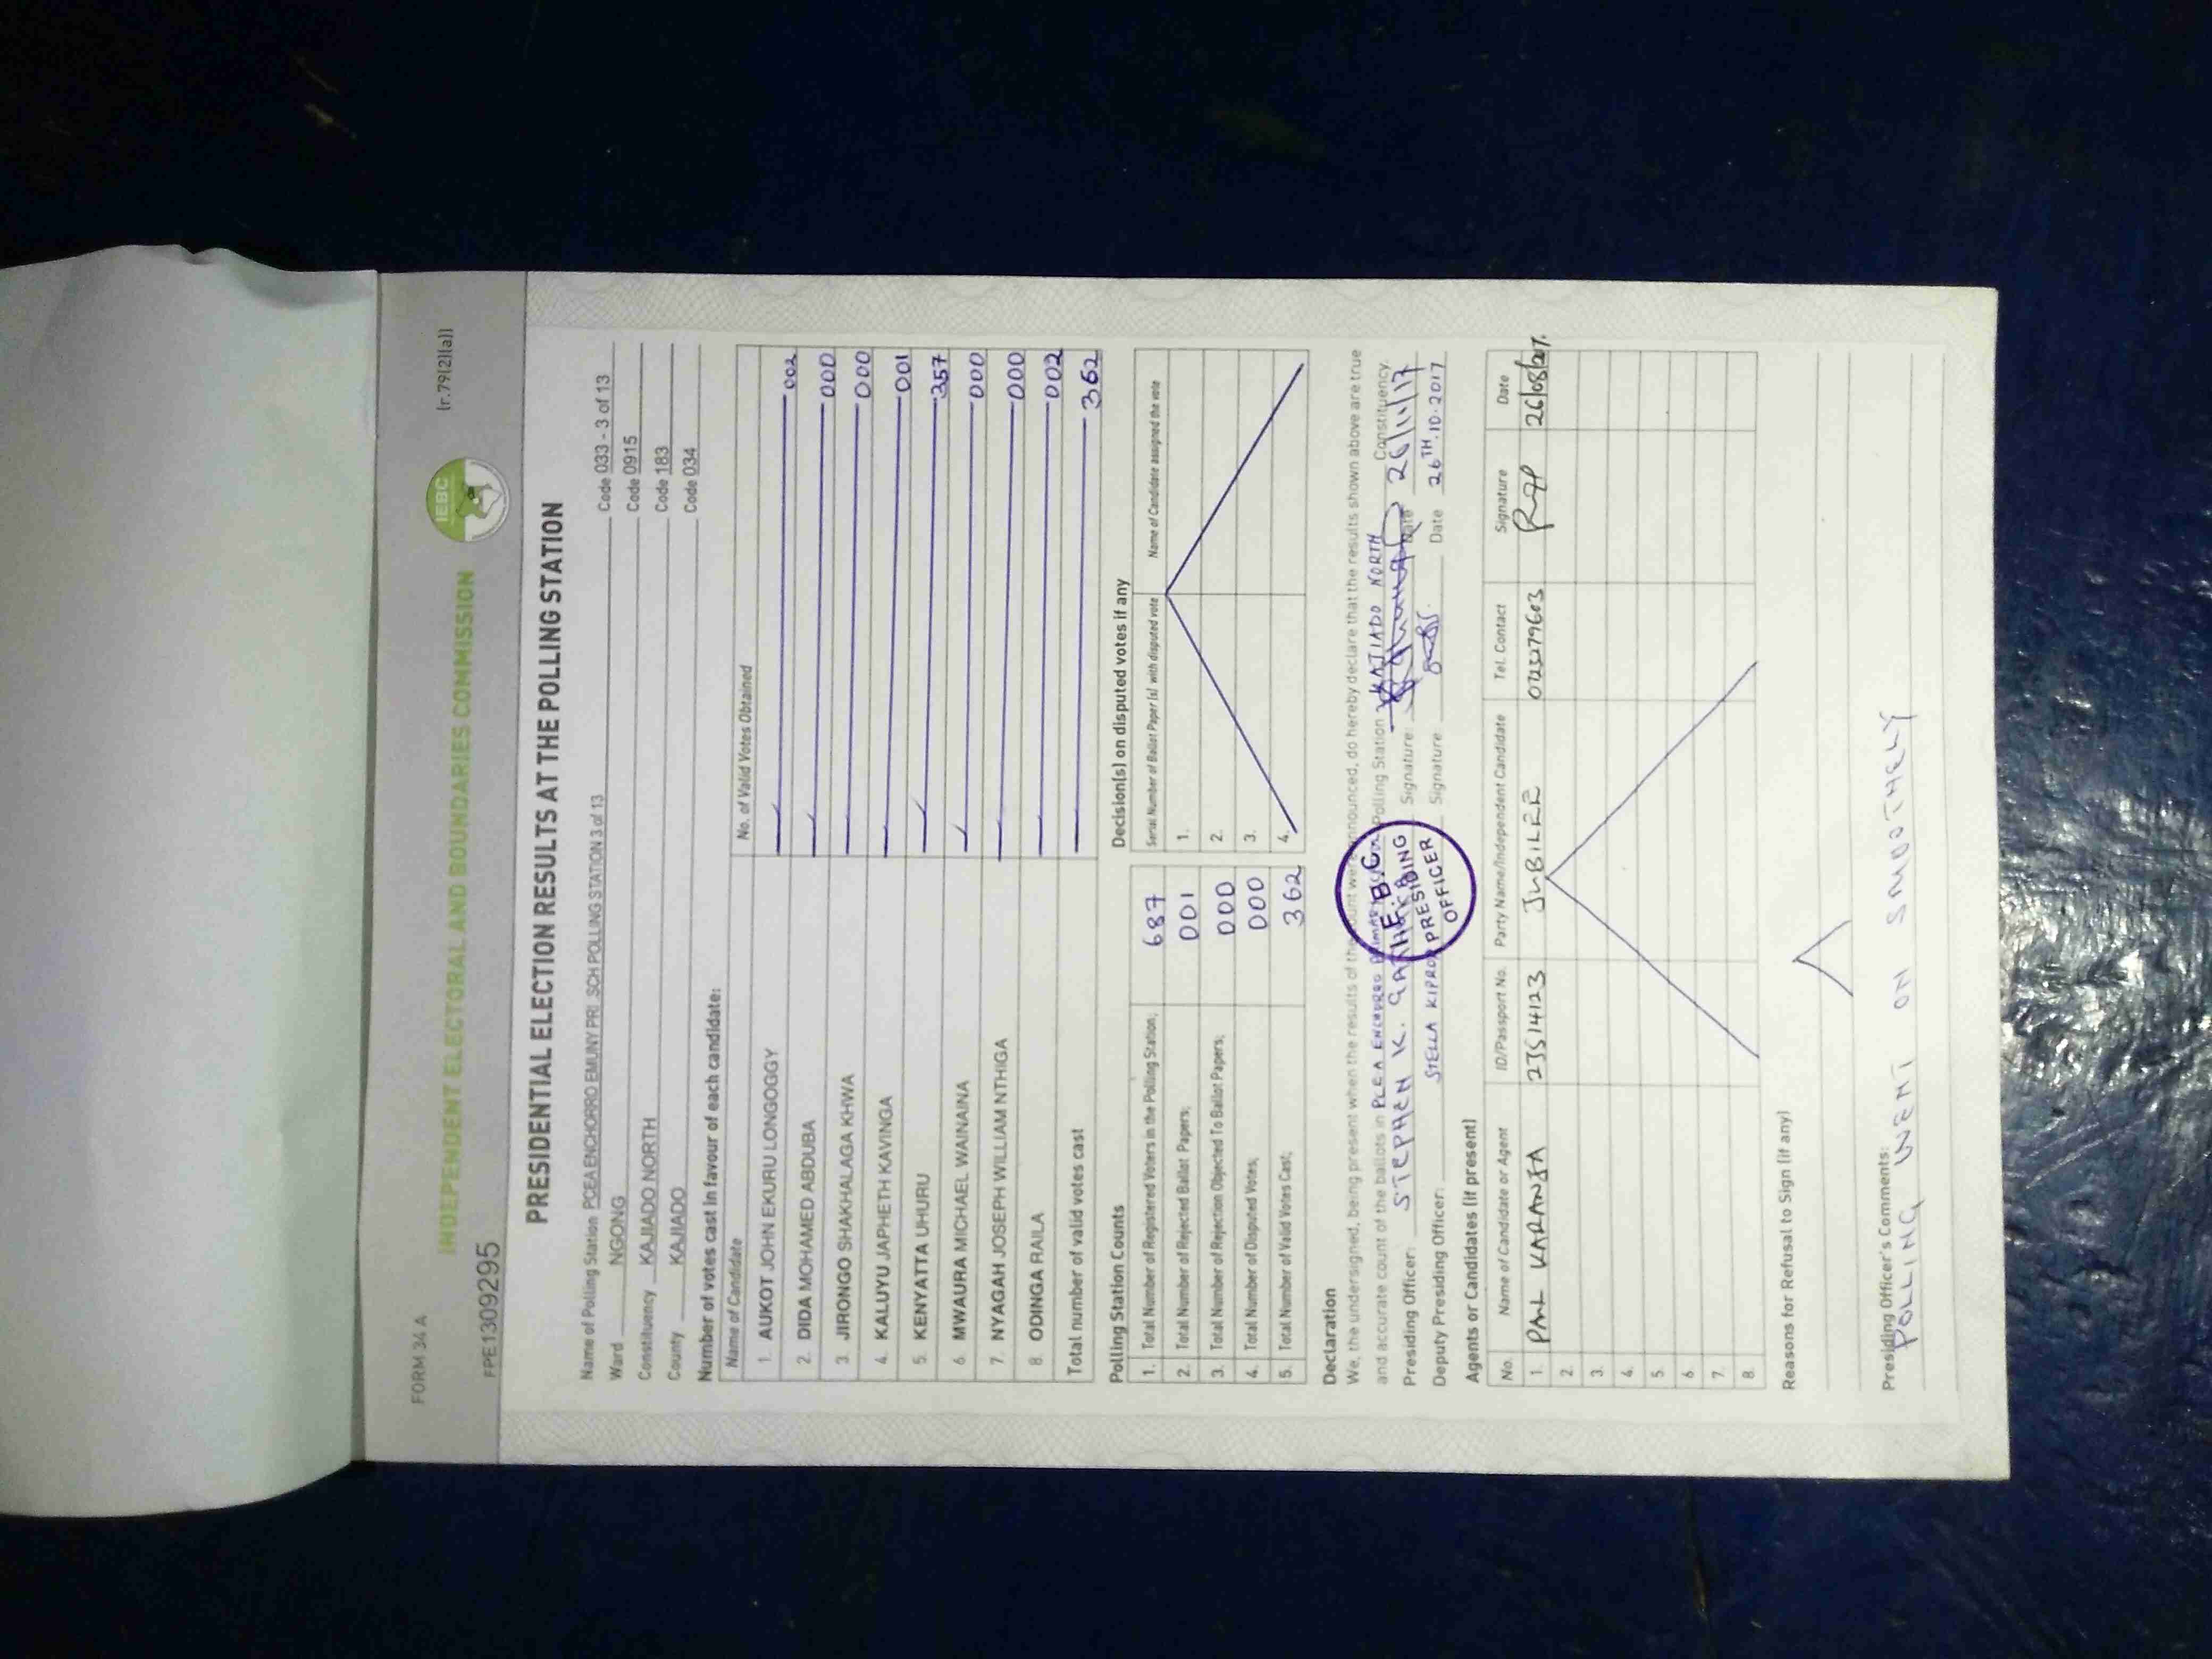 FORM 34 A
(r.79(2)(a))
INDEPENDENT ELECTORAL AND BOUNDARIES COMMISSION
IEBC
FPE1309295
PRESIDENTIAL ELECTION RESULTS AT THE POLLING STATION
Name of Polling Station PCEA ENCHORRO EMUNY PRI SCH POLLING STATION 3 of 13 Code 033 - 3 of 13
Ward NGONG Code 0915
Constituency KAJIADO NORTH Code 183
County KAJIADO Code 034
Number of votes cast in favour of each candidate:
Name of Candidate No. of Valid Votes Obtained
1. AUKOT JOHN EKURU LONGOGGY 002
2. DIDA MOHAMED ABDUBA 000
3. JIRONGO SHAKHALAGA KHWA 000
4. KALUYU JAPHETH KAVINGA 001
5. KENYATTA UHURU 357
6. MWAURA MICHAEL WAINAINA 000
7. NYAGAH JOSEPH WILLIAM NTHIGA 000
8. ODINGA RAILA 002
Total number of valid votes cast 362
Polling Station Counts
1. Total Number of Registered Voters in the Polling Station; 687
2. Total Number of Rejected Ballot Papers; 001
3. Total Number of Rejection Objected To Ballot Papers; 000
4. Total Number of Disputed Votes; 000
5. Total Number of Valid Votes Cast; 362
Decision(s) on disputed votes if any
Serial Number of Ballot Paper (s) with disputed vote Name of Candidate assigned the vote
1.
2.
3.
4.
Declaration
We, the undersigned, being present when the results of the count were announced, do hereby declare that the results shown above are true
and accurate count of the ballots in PCEA Polling Station KAJIADO NORTH Constituency.
Presiding Officer: STEPHEN K. Signature Date 26/11/17
Deputy Presiding Officer: STELLA Signature Date 26TH.10.2017
I.E.B.C
PRESIDING
OFFICER
Agents or Candidates (if present)
No. Name of Candidate or Agent ID/Passport No. Party Name/Independent Candidate Tel. Contact Signature Date
1. PAUL KARANJA 23514123 JUBILEE
2.
3.
4.
5.
6.
7.
8.
Reasons for Refusal to Sign (if any)
Presiding Officer's Comments:
POLLING WENT ON SMOOTHELY